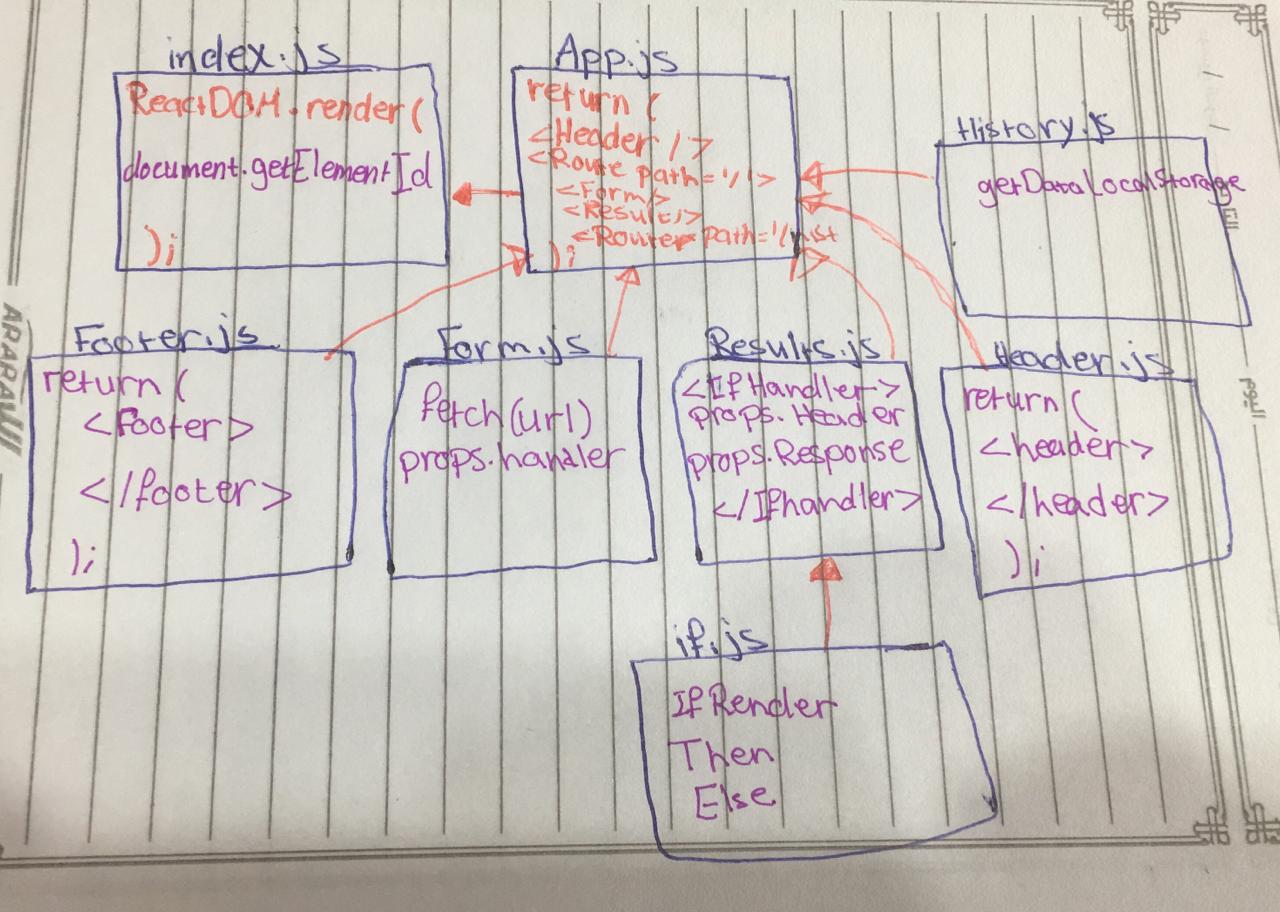 index.js
ReactDOM.render(
document.getElementId
);
App.js
return (
<Header />
<Route path='/'>
<Form/>
<Result/>
<Router path='/hist
);
History.js
getDataLocalStorage
Footer.js
return (
<footer>
</footer>
);
Form.js
fetch(url)
props.handler
Results.js
<IfHandler>
props.Header
props.Response
</Ifhandler>
Header.js
return (
<header>
</header>
);
if.js
If Render
Then
Else